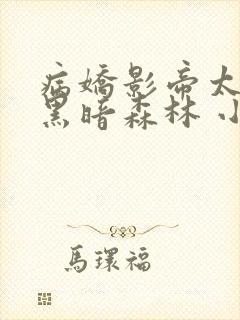 病嬌影帝太
黑暗森林 小
馬環福